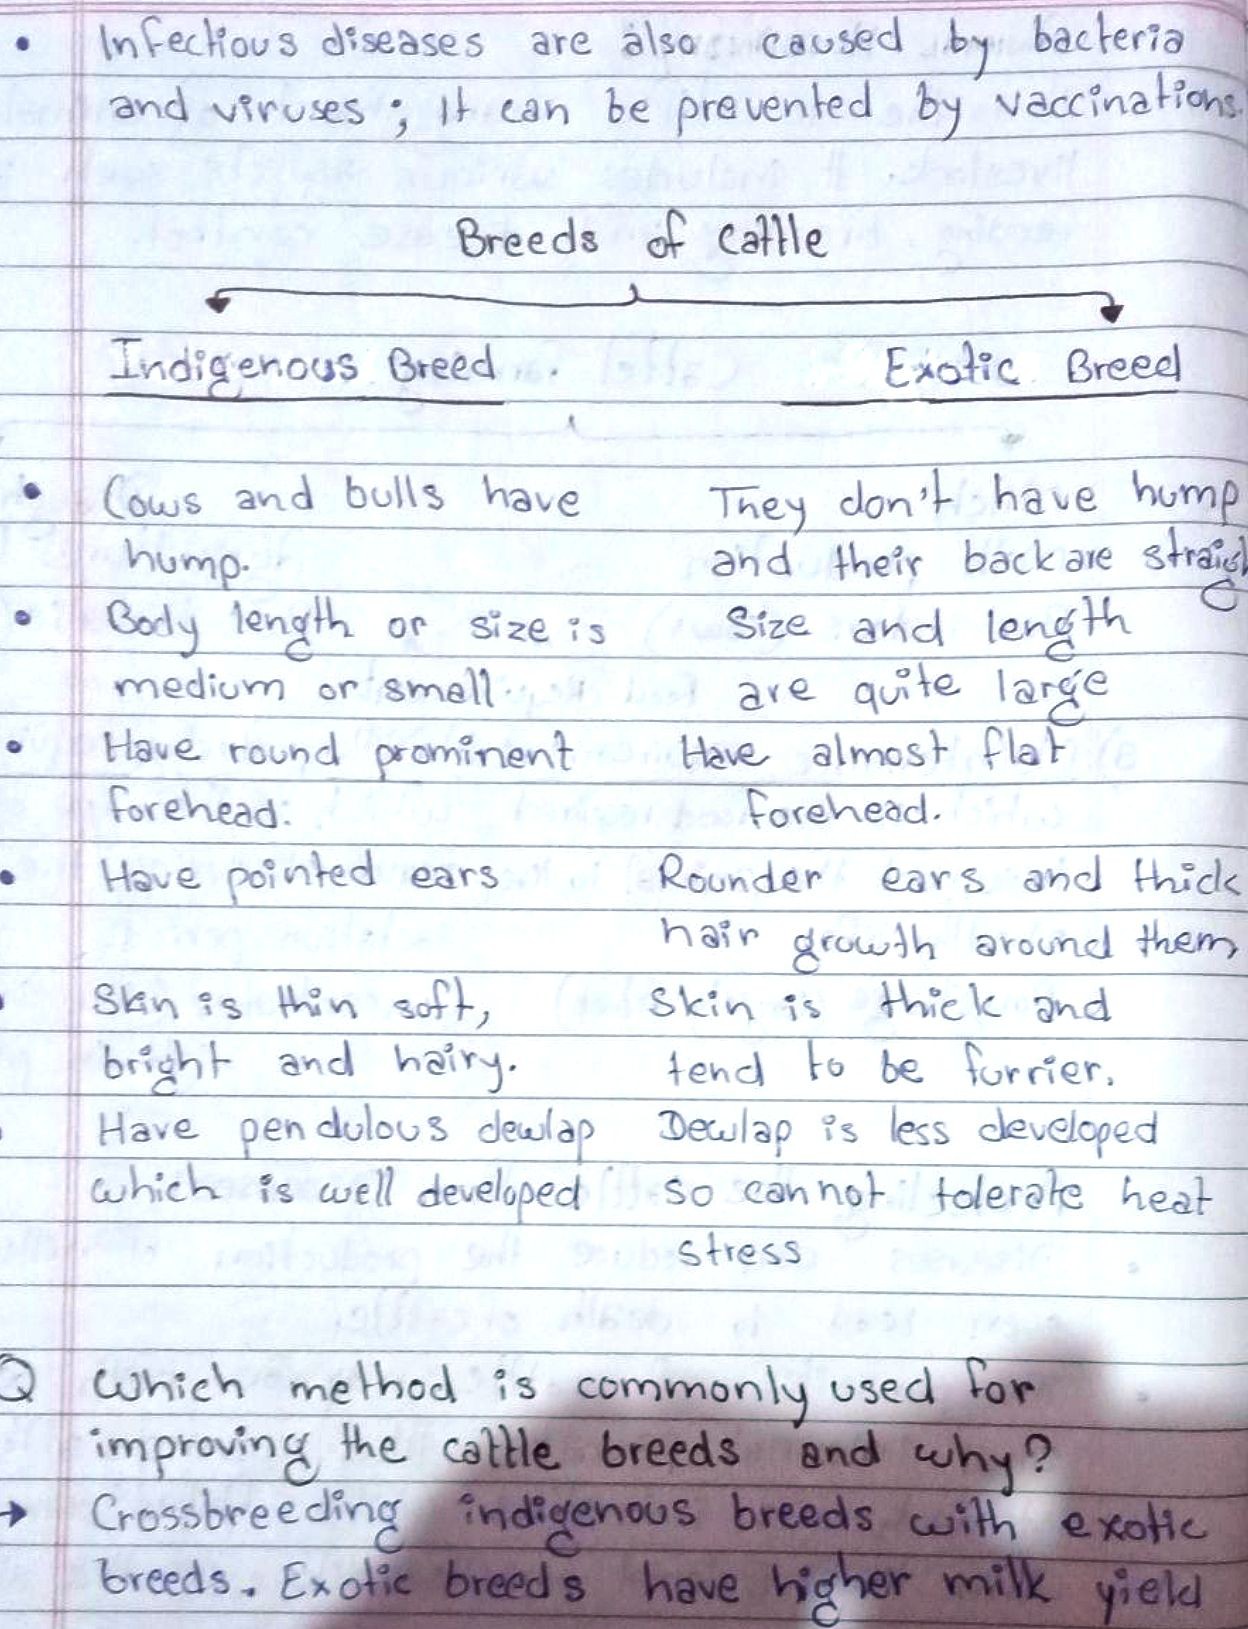 • Infectious diseases are also caused by bacteria
and viruses; It can be prevented by vaccinations.
Breeds of cattle
Indigenous Breed
Exotic Breed
• Cows and bulls have They don't have hump
hump. and their back are straigh
• Body length or size is Size and length
medium or small. are quite large
• Have round prominent Have almost flat
forehead. forehead.
• Have pointed ears Rounder ears and thick
hair growth around them
• Skin is thin soft, Skin is thick and
bright and hairy. tend to be furrier.
• Have pendulous dewlap Dewlap is less developed
which is well developed so cannot tolerate heat
stress
Q Which method is commonly used for
improving the cattle breeds and why?
→ Crossbreeding indigenous breeds with exotic
breeds. Exotic breeds have higher milk yield